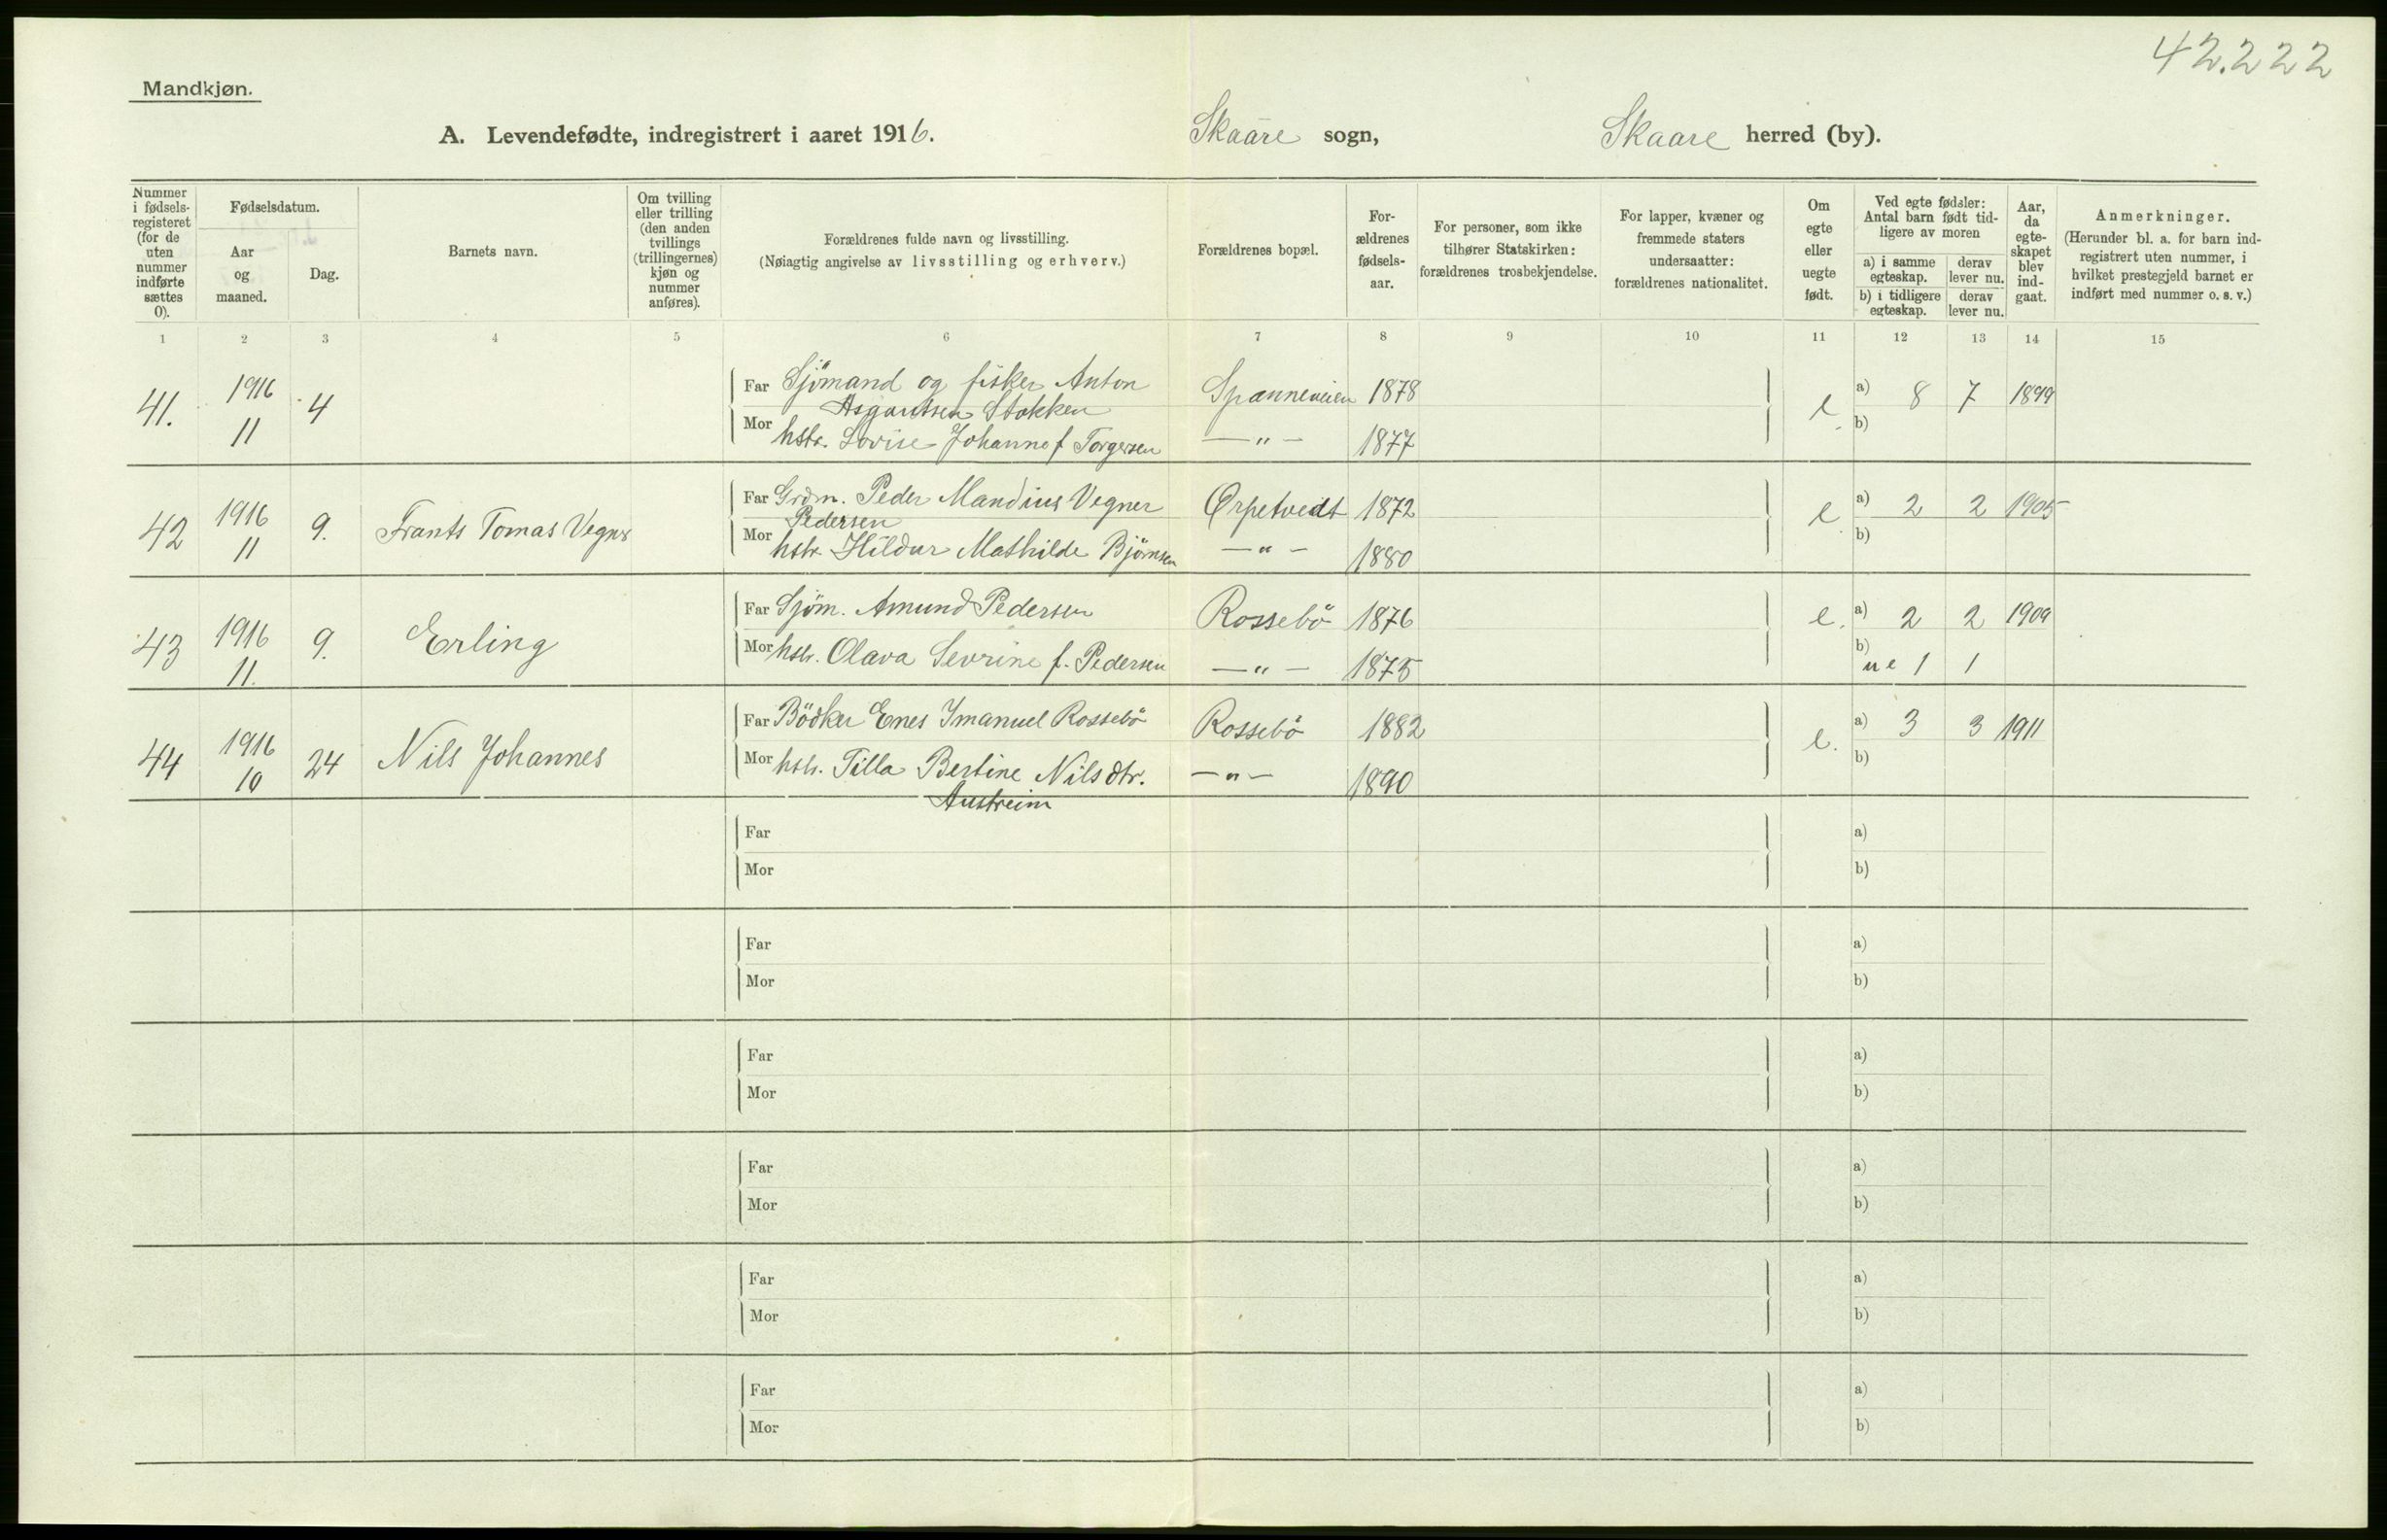 42.222
Mandkjøn.
A. Levendefødte, indregistrert i aaret 1916. Skaare sogn, Skaare herred (by).
Nummer i fødsels-registeret (for de uten nummer indførte sættes 0).
Fødselsdatum.
Aar og maaned.
Dag.
Barnets navn.
Om tvilling eller trilling (den anden tvillings (trillingernes) kjøn og nummer anføres).
Forældrenes fulde navn og livsstilling.
(Nøiagtig angivelse av livsstilling og erhverv.)
Forældrenes bopæl.
For-ældrenes fødsels-aar.
For personer, som ikke tilhører Statskirken: forældrenes trosbekjendelse.
For lapper, kvæner og fremmede staters undersaatter: forældrenes nationalitet.
Om egte eller uegte født.
Ved egte fødsler: Antal barn født tid-ligere av moren
a) i samme egteskap. derav lever nu.
b) i tidligere egteskap. derav lever nu.
Aar, da egte-skapet blev ind-gaat.
Anmerkninger.
(Herunder bl. a. for barn ind-registrert uten nummer, i hvilket prestegjeld barnet er indført med nummer o. s. v.)
1 2 3 4 5 6 7 8 9 10 11 12 13 14 15
41. 1916 11 4
Far Sjömand og fisker Anton Stokken Spanneveien 1878 e a) 8 7 1899
Mor hstr. Lovise Johanne f Torgersen —"— 1877 b)
42 1916 11 9. Frants Tomas Vegner
Far Grdm. Peder Mandius Vegner Pedersen Ørpetvedt 1872 e a) 2 2 1905
Mor hstr. Hildur Mathilde Björnsen —"— 1880 b)
43 1916 11. 9. Erling
Far Sjöm. Amund Pedersen Rossebö 1876 e. a) 2 2 1909
Mor hstr. Olava Sevrine f. Pedersen —"— 1875 b) ue 1 1
44 1916 10 24 Nils Johannes
Far Bödker Enes Imanuel Rossebö Rossebö 1882 e. a) 3 3 1911
Mor hstr. Tilla Bertine Nilsdtr. Austreim —"— 1890 b)
Far a)
Mor b)
Far a)
Mor b)
Far a)
Mor b)
Far a)
Mor b)
Far a)
Mor b)
Far a)
Mor b)